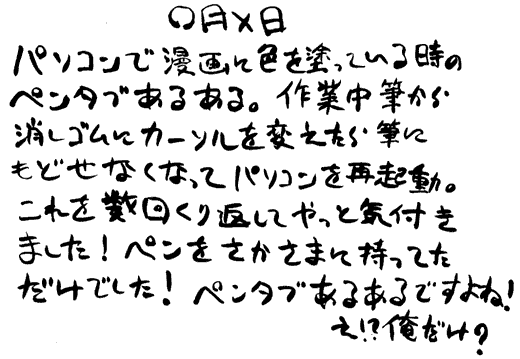 〇月×日
パソコンで漫画に色を塗っている時の
ペンタブあるある。作業中筆から
消しゴムにカーソルを変えたら筆に
もどせなくなってパソコンを再起動。
これを数回くり返してやっと気付き
ました！ペンをさかさまに持ってた
だけでした！ペンタブあるあるですよね！
え!?俺だけ？